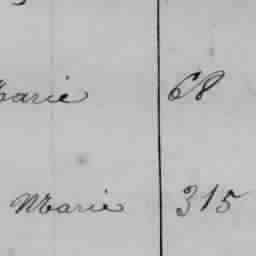 Marie 68
Marie 315